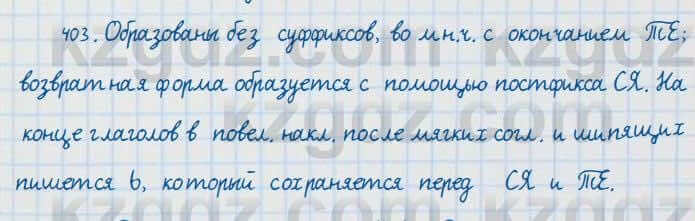 403. Образованы без суффиксов, во мн.ч. с окончанием ТЕ;
возвратная форма образуется с помощью постфикса СЯ. На
конце глаголов в повел. накл. после мягких согл. и шипящих
пишется ь, который сохраняется перед СЯ и ТЕ.